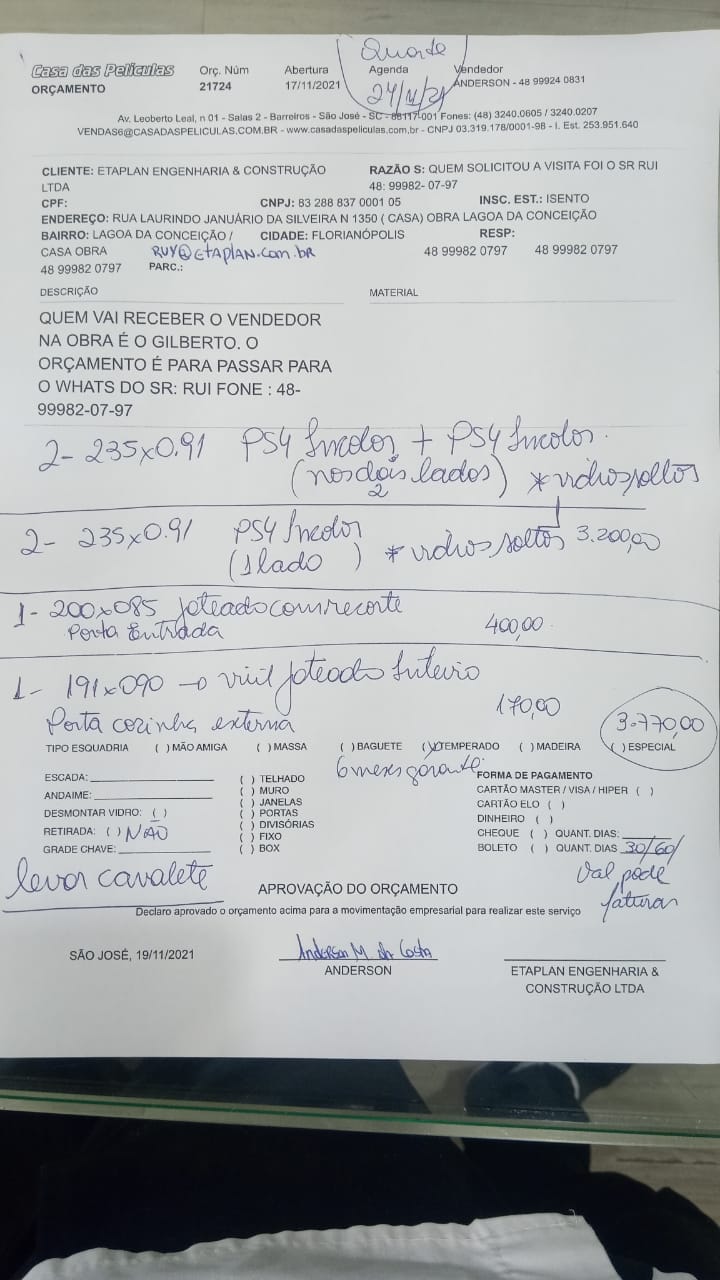 Quarta
Casa das Películas Orç. Núm Abertura Agenda Vendedor
ORÇAMENTO 21724 17/11/2021 24/11/21 ANDERSON - 48 99924 0831
Av. Leoberto Leal, n 01 - Salas 2 - Barreiros - São José - SC - 88117-001 Fones: (48) 3240.0605 / 3240.0207
VENDAS6@CASADASPELICULAS.COM.BR - www.casadaspeliculas.com.br - CNPJ 03.319.178/0001-98 - I. Est. 253.951.640
CLIENTE: ETAPLAN ENGENHARIA & CONSTRUÇÃO LTDA
RAZÃO S: QUEM SOLICITOU A VISITA FOI O SR RUI 48: 99982- 07-97
CPF: CNPJ: 83 288 837 0001 05 INSC. EST.: ISENTO
ENDEREÇO: RUA LAURINDO JANUÁRIO DA SILVEIRA N 1350 ( CASA) OBRA LAGOA DA CONCEIÇÃO
BAIRRO: LAGOA DA CONCEIÇÃO / CIDADE: FLORIANÓPOLIS RESP:
CASA OBRA RUY@ETAPLAN.com.br 48 99982 0797 48 99982 0797
48 99982 0797 PARC.:
DESCRIÇÃO MATERIAL
QUEM VAI RECEBER O VENDEDOR
NA OBRA É O GILBERTO. O
ORÇAMENTO É PARA PASSAR PARA
O WHATS DO SR: RUI FONE : 48-
99982-07-97
2- 235x0.91 PS4 Incolor + PS4 Incolor.
(nos dois lados) * vidros soltos
2
2- 235x0.91 PS4 Incolor
(1 lado) * vidros soltos 3.200,00
1- 200x085 jateado com recorte
Porta Entrada 400,00
1- 191x090 → vinil jateado Inteiro
Porta cozinha externa 170,00
3.770,00
TIPO ESQUADRIA ( ) MÃO AMIGA ( ) MASSA ( ) BAGUETE (X) TEMPERADO ( ) MADEIRA ( ) ESPECIAL
6 meses garantia
ESCADA:
ANDAIME:
DESMONTAR VIDRO: ( )
RETIRADA: ( ) NÃO
GRADE CHAVE:
( ) TELHADO
( ) MURO
( ) JANELAS
( ) PORTAS
( ) DIVISÓRIAS
( ) FIXO
( ) BOX
FORMA DE PAGAMENTO
CARTÃO MASTER / VISA / HIPER ( )
CARTÃO ELO ( )
DINHEIRO ( )
CHEQUE ( ) QUANT. DIAS:
BOLETO ( ) QUANT. DIAS 30/60/
Val pode
faturar
levar cavalete
APROVAÇÃO DO ORÇAMENTO
Declaro aprovado o orçamento acima para a movimentação empresarial para realizar este serviço
SÃO JOSÉ, 19/11/2021
Anderson M. da Costa
ANDERSON
ETAPLAN ENGENHARIA &
CONSTRUÇÃO LTDA